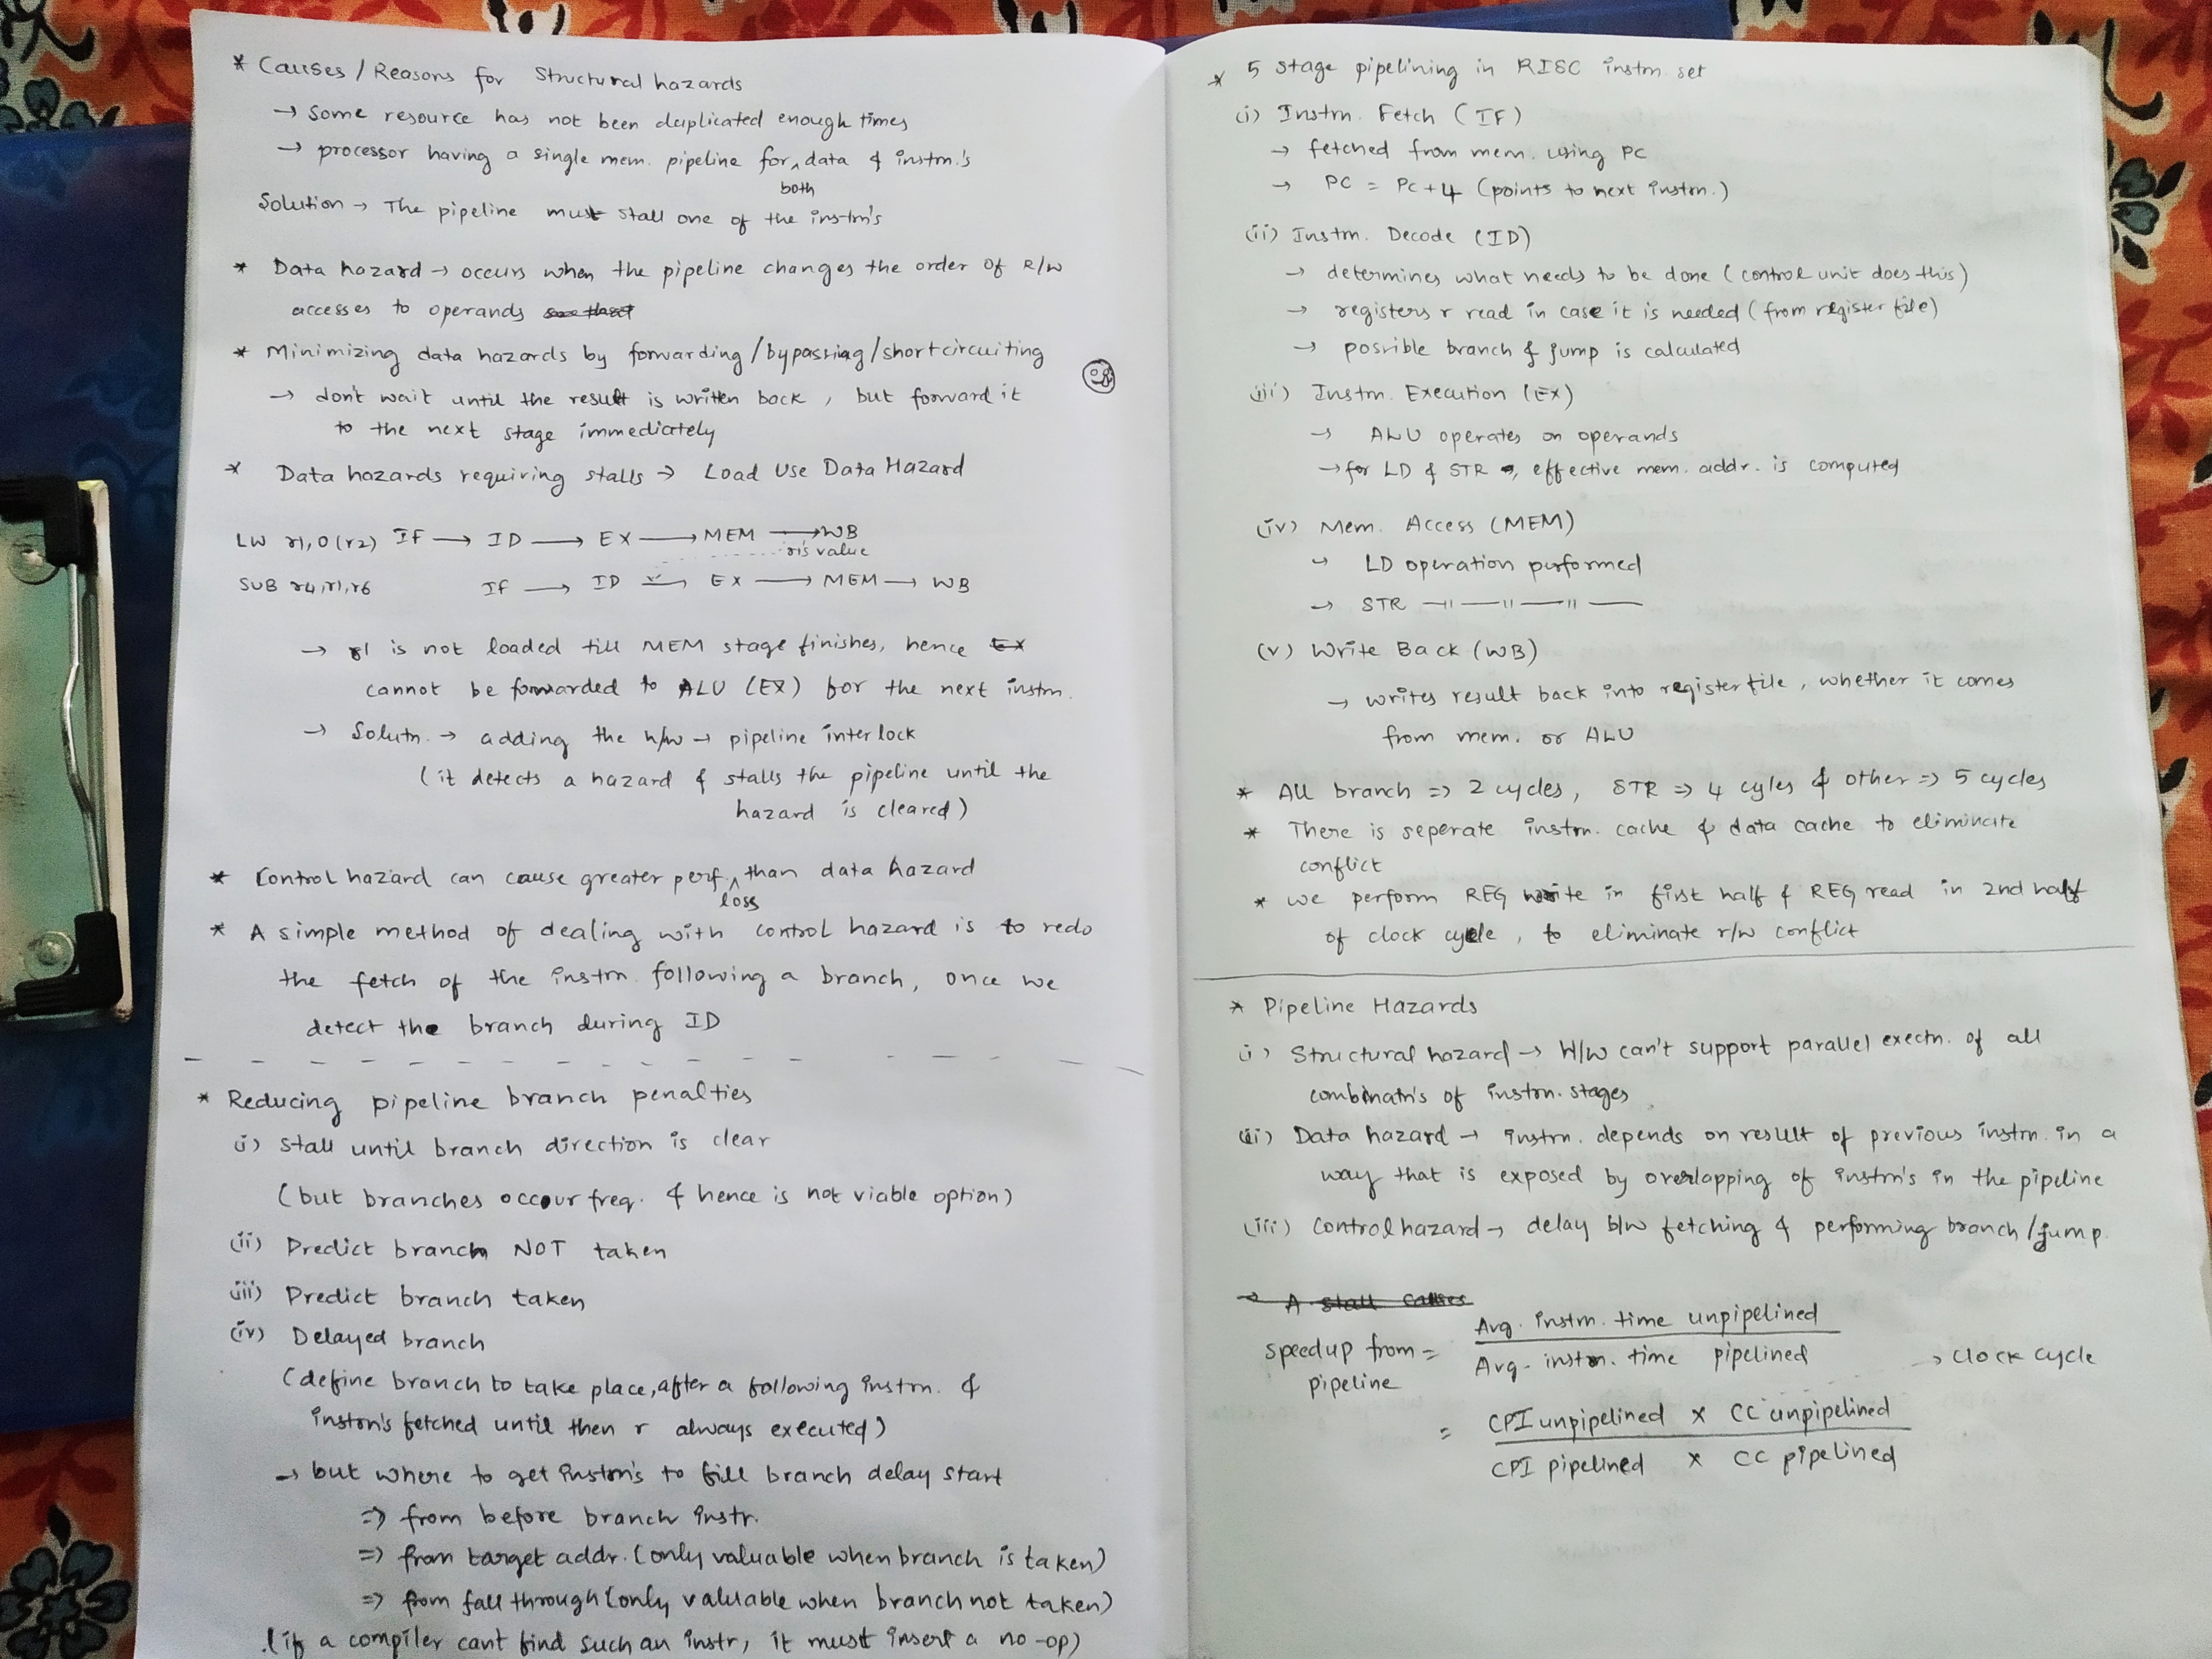 * Causes / Reasons for Structural hazards
→ Some resource has not been duplicated enough times
→ processor having a single mem. pipeline for both data & instrn.'s
Solution → The pipeline must stall one of the instrn's
* Data hazard → occurs when the pipeline changes the order of R/W
accesses to operands
* Minimizing data hazards by forwarding / bypassing / shortcircuiting
→ don't wait until the result is written back, but forward it
to the next stage immediately
* Data hazards requiring stalls → Load Use Data Hazard
LW r1, 0(r2) IF → ID → EX → MEM → WB
r1's value
SUB r4, r1, r6 IF → ID → EX → MEM → WB
→ r1 is not loaded till MEM stage finishes, hence
cannot be forwarded to ALU (EX) for the next instrn.
→ Solutn. → adding the h/w → pipeline interlock
(it detects a hazard & stalls the pipeline until the
hazard is cleared)
* Control hazard can cause greater perf. loss than data hazard
* A simple method of dealing with control hazard is to redo
the fetch of the instrn. following a branch, once we
detect the branch during ID
* Reducing pipeline branch penalties
(i) Stall until branch direction is clear
(but branches occour freq. & hence is not viable option)
(ii) Predict branch NOT taken
(iii) Predict branch taken
(iv) Delayed branch
(define branch to take place, after a following instrn. &
instrn's fetched until then r always executed)
→ but where to get instrn's to fill branch delay start
=> from before branch instr.
=> from target addr. (only valuable when branch is taken)
=> from fall through (only valuable when branch not taken)
(if a compiler cant find such an instr, it must insert a no-op)
* 5 stage pipelining in RISC instrn. set
(i) Instrn. Fetch (IF)
→ fetched from mem. using PC
→ PC = PC + 4 (points to next instrn.)
(ii) Instrn. Decode (ID)
→ determines what needs to be done (control unit does this)
→ registers r read in case it is needed (from register file)
→ possible branch & jump is calculated
(iii) Instrn. Execution (EX)
→ ALU operates on operands
→ for LD & STR, effective mem. addr. is computed
(iv) Mem. Access (MEM)
→ LD operation performed
→ STR —||—||—||—
(v) Write Back (WB)
→ writes result back into register file, whether it comes
from mem. or ALU
* All branch => 2 cycles, STR => 4 cyles & other => 5 cycles
* There is seperate instrn. cache & data cache to eliminate
conflict
* we perform REG write in first half & REG read in 2nd half
of clock cycle, to eliminate r/w conflict
* Pipeline Hazards
(i) Structural hazard → H/W can't support parallel exectn. of all
combinatn's of instrn. stages
(ii) Data hazard → instrn. depends on result of previous instrn. in a
way that is exposed by overlapping of instrn's in the pipeline
(iii) Control hazard → delay b/w fetching & performing branch / jump.
→ A stall causes
speedup from pipeline = Avg. instrn. time unpipelined
Avg. instrn. time pipelined
→ Clock cycle
= CPI unpipelined x CC unpipelined
CPI pipelined x CC pipelined